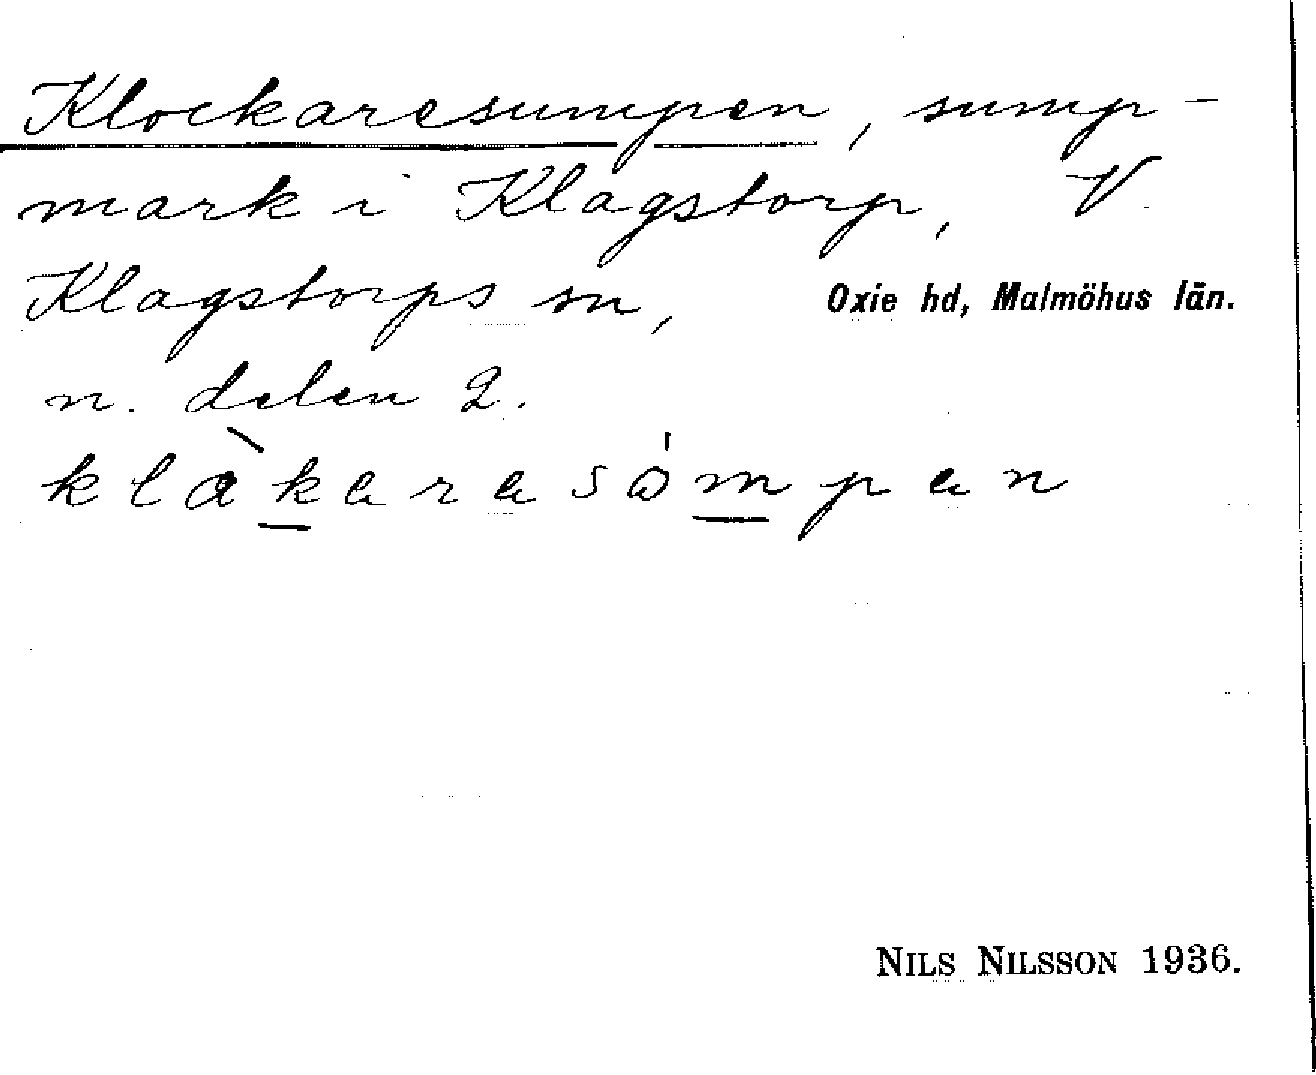 Klockaresumpen, sump-
mark i Klagstorp, V.
Klagstorps sn, Oxie hd, Malmöhus län.
n. delen 2.
klàkarasåmpan
NILS NILSSON 1936.